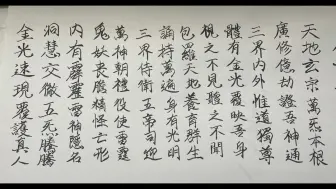 天地玄宗萬炁本根
廣修億劫證吾神通
三界內外惟道獨尊
體有金光覆映吾身
視之不見聽之不聞
包羅天地養育群生
誦持萬遍身有光明
三界侍衛五帝司迎
萬神朝禮役使雷霆
鬼妖喪膽精怪亡形
內有霹靂雷神隱名
洞慧交徹五炁騰騰
金光速現覆護真人